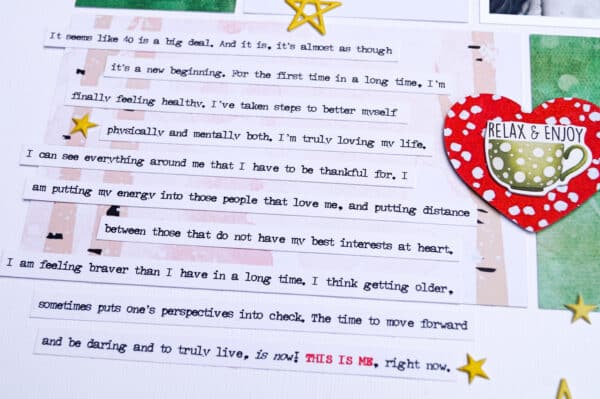 It seems like 40 is a big deal. And it is, it's almost as though
it's a new beginning. For the first time in a long time, I'm
finally feeling healthy. I've taken steps to better myself
physically and mentally both. I'm truly loving my life.
I can see everything around me that I have to be thankful for. I
am putting my energy into those people that love me, and putting distance
between those that do not have my best interests at heart.
I am feeling braver than I have in a long time. I think getting older,
sometimes puts one's perspectives into check. The time to move forward
and be daring and to truly live, is now! THIS IS ME, right now.
RELAX & ENJOY